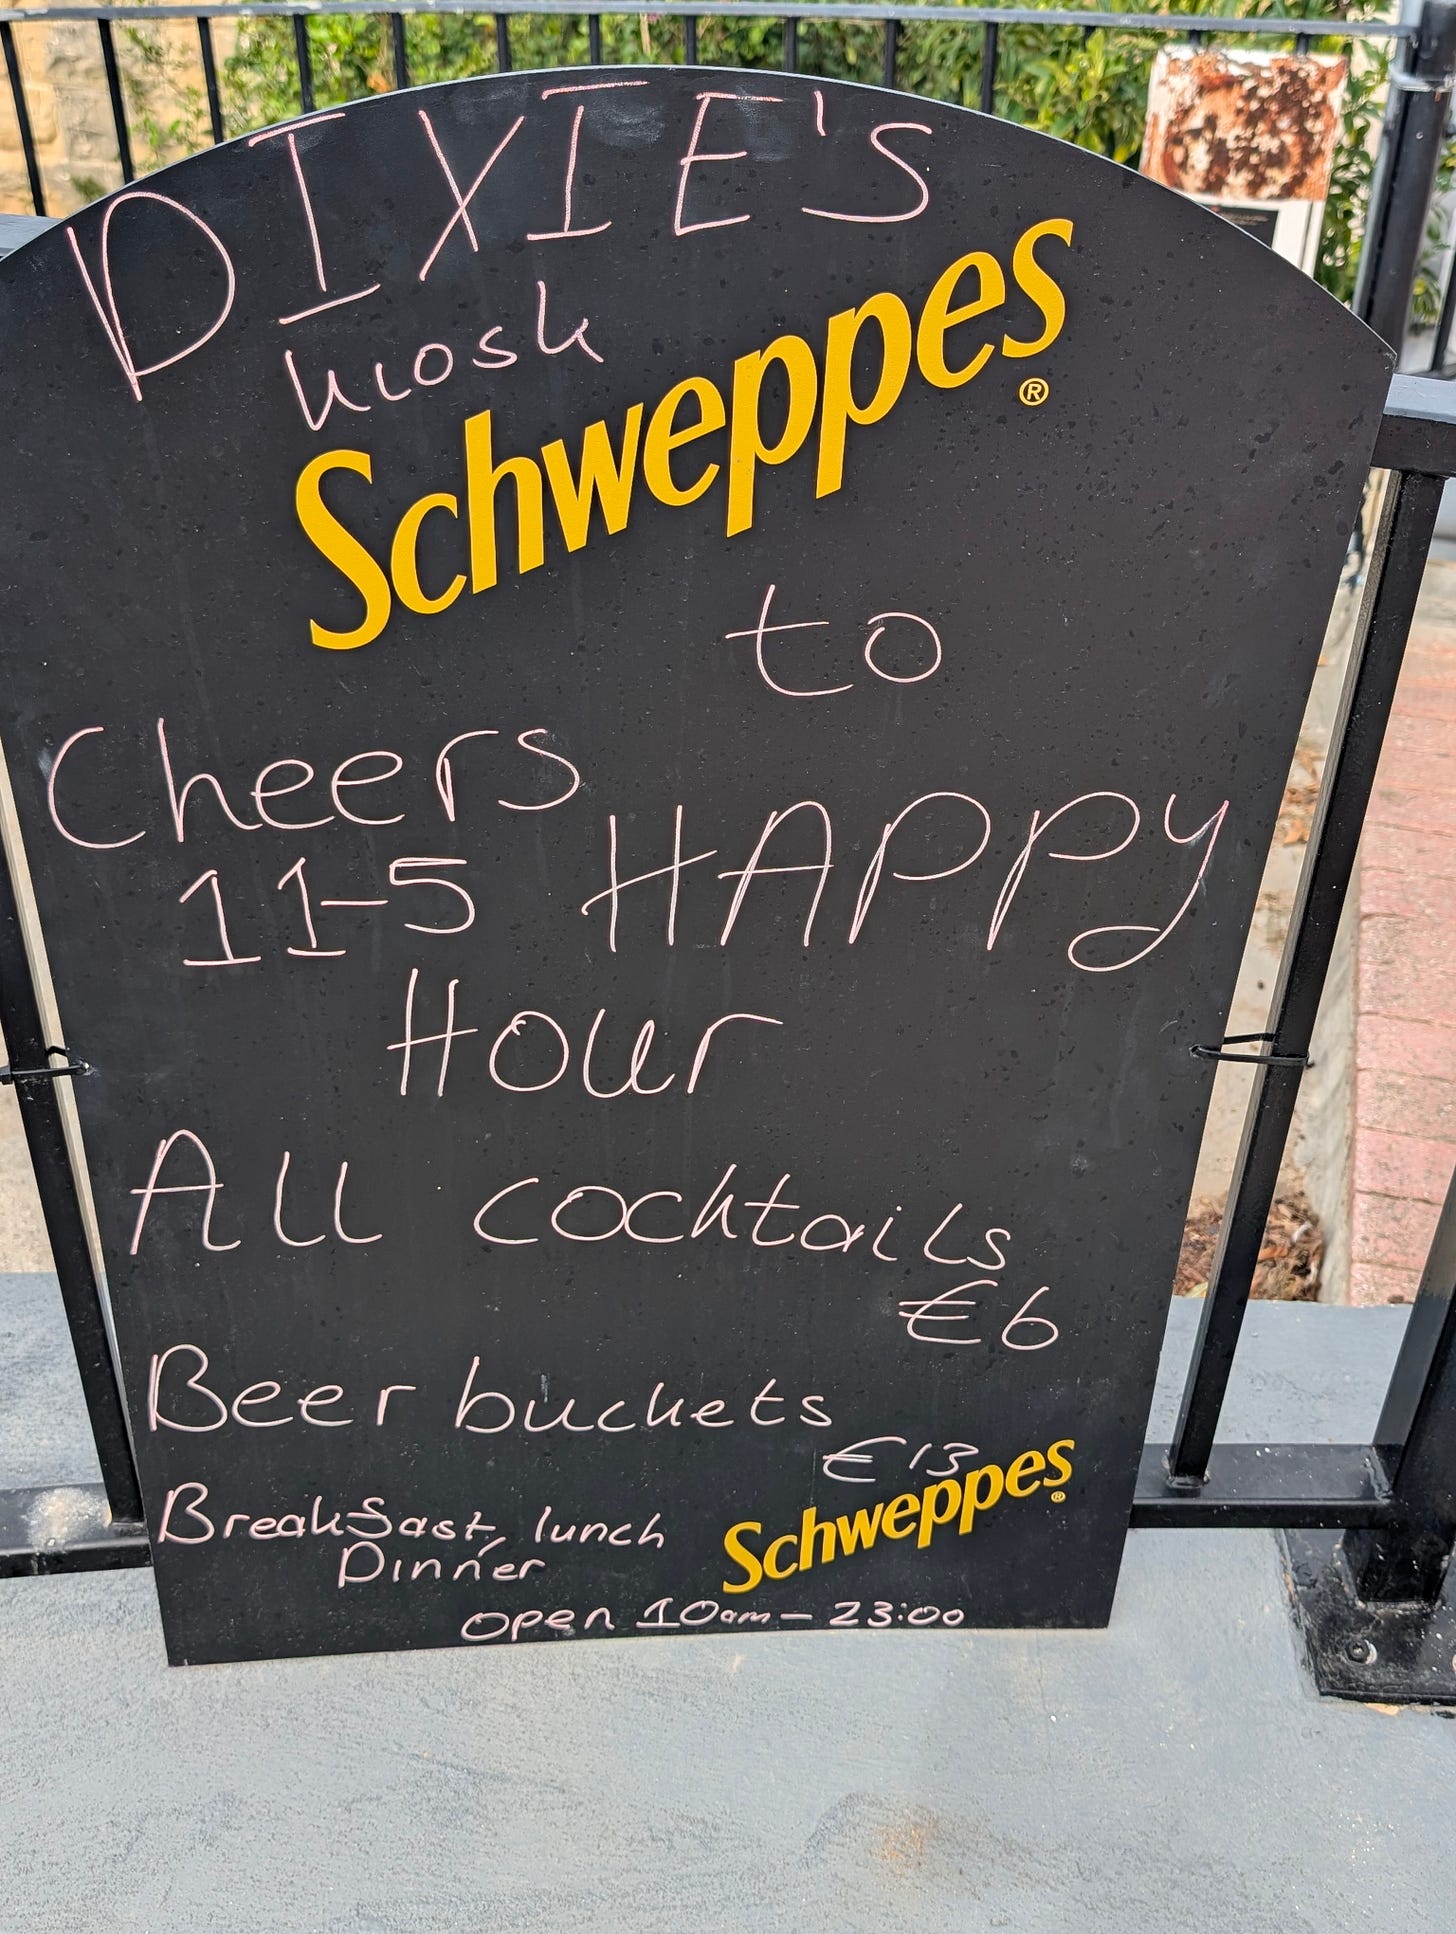 DIXIE'S
kiosk
Schweppes®
to
Cheers
11-5 HAPPY
Hour
All cocktails
€6
Beer buckets
€13
Breakfast, lunch
Dinner
Schweppes®
open 10am - 23:00